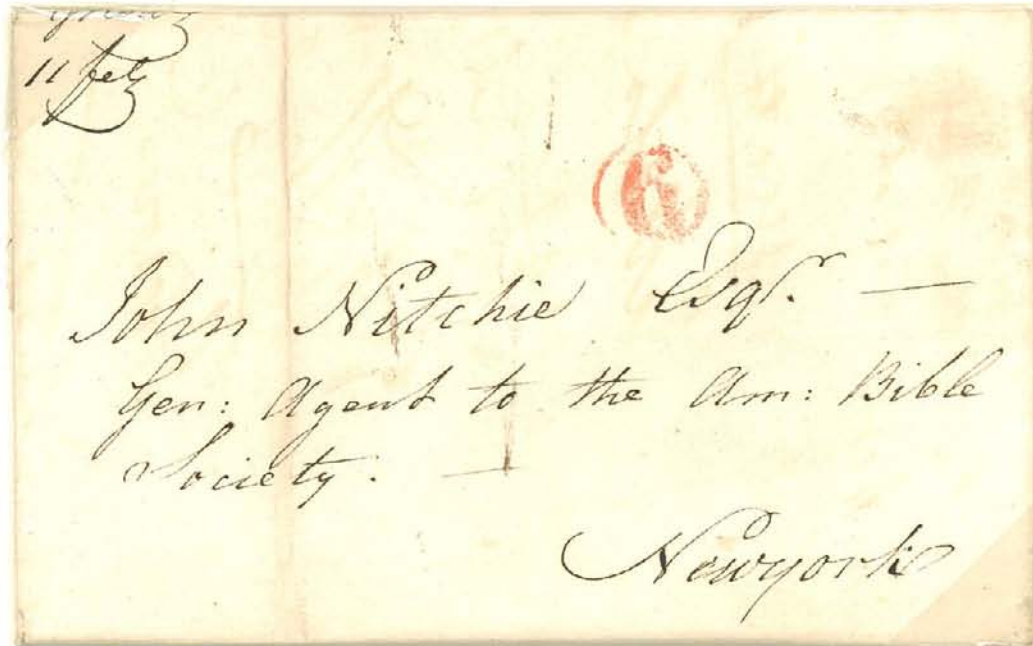 11 feb
6
John Nitchie Esqr. —
Gen: Agent to the Am: Bible
Society. —
Newyork